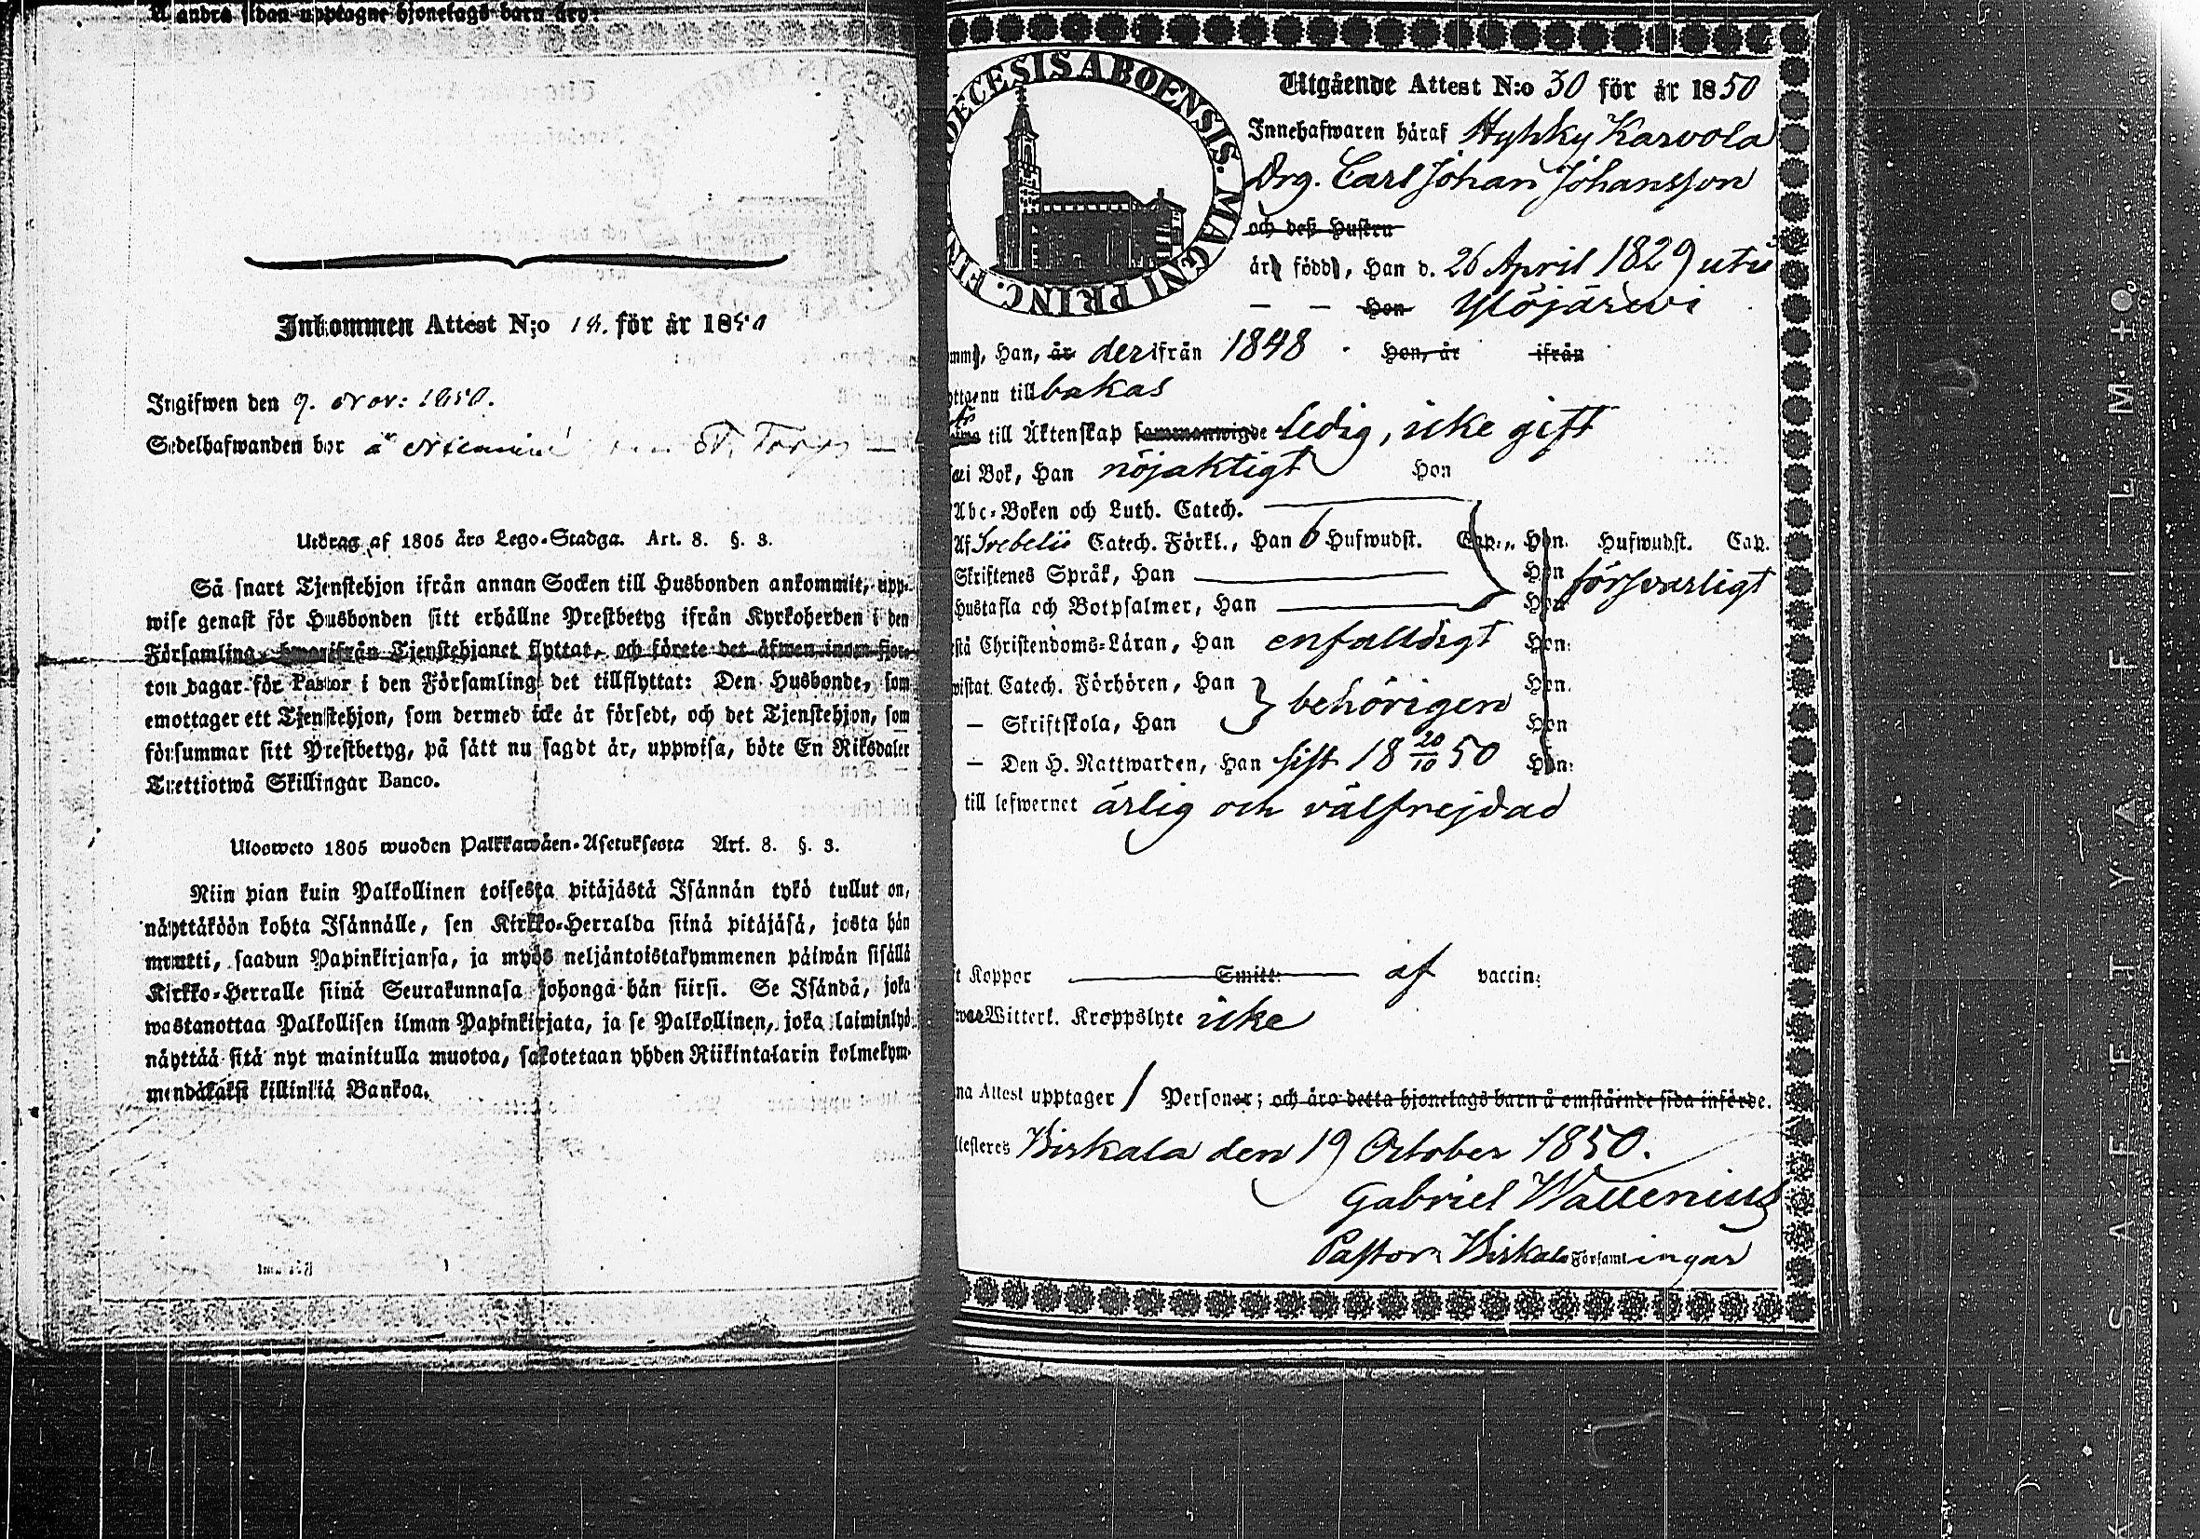 å andra sidan upptagne hjonelags barn äro:
Inkommen Attest N:o 14. för år 1850
Ingifwen den 9. Nov: 1850.
Sedelhafwanden bor å
Utdrag af 1805 års Lego-Stadga. Art. 8. §. 3.
Så snart Tjenstehjon ifrån annan Socken till Husbonden ankommit, upp-
wise genast för Husbonden sitt erhållne Prestbetyg ifrån Kyrkoherden i den
Församling, hwarifrån Tjenstehjonet flyttat, och förete det äfwen inom fjor-
ton dagar för Pastor i den Församling det tillflyttat: Den Husbonde, som
emottager ett Tjenstehjon, som dermed icke är försedt, och det Tjenstehjon, som
försummar sitt Prestbetyg, på sätt nu sagdt är, uppwisa, böte En Riksdaler
Trettiotwå Skillingar Banco.
Ulosweto 1805 wuoden Palkkawäen-Asetuksesta Art. 8. §. 3.
Niin pian kuin Palkollinen toisesta pitäjästä Isännän tykö tullut on,
näyttäköön kohta Isännälle, sen Kirkko-Herralda siinä pitäjäsä, josta hän
muutti, saadun Papinkirjansa, ja myös neljäntoistakymmenen päiwän sisällä
Kirkko-Herralle siinä Seurakunnasa johonga hän siirsi. Se Isändä, joka
wastanottaa Palkollisen ilman Papinkirjata, ja se Palkollinen, joka laiminlyö
näyttää sitä nyt mainitulla muotoa, sakotetaan yhden Riikintalarin kolmekym-
mendäkaksi killinkiä Bankoa.
DIOECESIS ABOENSIS. MAGNI PRINC. FIN
Utgående Attest N:o 30 för år 1850
Innehafwaren häraf Hyhky Karvola
Drg. Carl Johan Johansson
och deß Hustru
är född, Han d. 26 April 1829 uti
— — Hon Ylöjärvi
Han, är derifrån 1848 . Hon, är ifrån
nu till bakas
till Äktenskap sammanwigde ledig, icke gift
i Bok, Han nöjaktigt Hon
Abc-Boken och Luth. Catech.
Af Svebelii Catech. Förkl., Han 6 Hufwudst. Cap., Hon. Hufwudst. Cap.
Skriftenes Språk, Han Hon försvarligt
Hustafla och Botpsalmer, Han Hon
Christendoms-Läran, Han enfalldigt Hon:
wistat Catech. Förhören, Han } behörigen Hon.
— Skriftskola, Han Hon
— Den H. Nattwarden, Han sist 18 20/10 50 Hon:
till lefwernet ärlig och välfrejdad
Koppor Smitt: af vaccin:
Witterl. Kroppslyte icke
na Attest upptager 1 Personer; och äro detta hjonelags barn å omstående sida införde.
Birkala den 19 October 1850.
Gabriel Wallenius
Pastor i Birkala Församlingar
SAFETY FILM